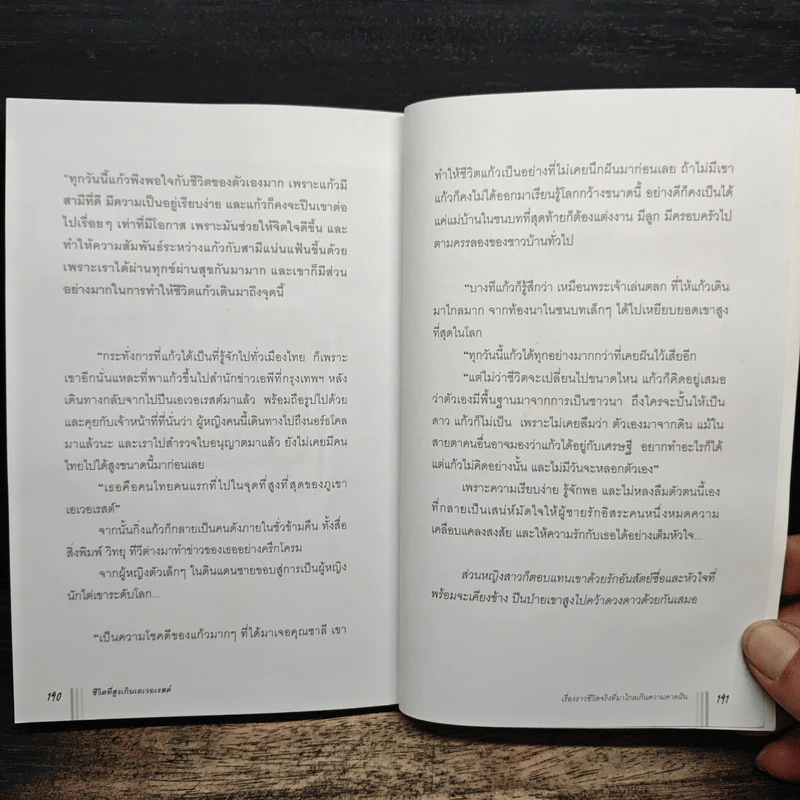 "ทุกวันนี้แก้วพึงพอใจกับชีวิตของตัวเองมาก เพราะแก้วมี
สามีที่ดี มีความเป็นอยู่เรียบง่าย และแก้วก็คงจะปีนเขาต่อ
ไปเรื่อยๆ เท่าที่มีโอกาส เพราะมันช่วยให้จิตใจดีขึ้น และ
ทำให้ความสัมพันธ์ระหว่างแก้วกับสามีแน่นแฟ้นขึ้นด้วย
เพราะเราได้ผ่านทุกข์ผ่านสุขกันมามาก และเขาก็มีส่วน
อย่างมากในการทำให้ชีวิตแก้วเดินมาถึงจุดนี้
"กระทั่งการที่แก้วได้เป็นที่รู้จักไปทั่วเมืองไทย ก็เพราะ
เขาอีกนั่นแหละที่พาแก้วขึ้นไปสำนักข่าวเอพีที่กรุงเทพฯ หลัง
เดินทางกลับจากไปปีนเอเวอเรสต์มาแล้ว พร้อมถือรูปไปด้วย
และคุยกับเจ้าหน้าที่ที่นั่นว่า ผู้หญิงคนนี้เดินทางไปถึงนอร์ธโคล
มาแล้วนะ และเราไปสำรวจใบอนุญาตมาแล้ว ยังไม่เคยมีคน
ไทยไปได้สูงขนาดนี้มาก่อนเลย
"เธอคือคนไทยคนแรกที่ไปในจุดที่สูงที่สุดของภูเขา
เอเวอเรสต์"
จากนั้นกิ่งแก้วก็กลายเป็นคนดังภายในชั่วข้ามคืน ทั้งสื่อ
สิ่งพิมพ์ วิทยุ ทีวีต่างมาทำข่าวของเธออย่างครึกโครม
จากผู้หญิงตัวเล็กๆ ในดินแดนชายขอบสู่การเป็นผู้หญิง
นักไต่เขาระดับโลก...
"เป็นความโชคดีของแก้วมากๆ ที่ได้มาเจอคุณชาลี เขา
190 ชีวิตที่สูงเกินเอเวอเรสต์
ทำให้ชีวิตแก้วเป็นอย่างที่ไม่เคยนึกฝันมาก่อนเลย ถ้าไม่มีเขา
แก้วก็คงไม่ได้ออกมาเรียนรู้โลกกว้างขนาดนี้ อย่างดีก็คงเป็นได้
แค่แม่บ้านในชนบทที่สุดท้ายก็ต้องแต่งงาน มีลูก มีครอบครัวไป
ตามครรลองของชาวบ้านทั่วไป
"บางทีแก้วก็รู้สึกว่า เหมือนพระเจ้าเล่นตลก ที่ให้แก้วเดิน
มาไกลมาก จากท้องนาในชนบทเล็กๆ ได้ไปเหยียบยอดเขาสูง
ที่สุดในโลก
"ทุกวันนี้แก้วได้ทุกอย่างมากกว่าที่เคยฝันไว้เสียอีก
"แต่ไม่ว่าชีวิตจะเปลี่ยนไปขนาดไหน แก้วก็คิดอยู่เสมอ
ว่าตัวเองมีพื้นฐานมาจากการเป็นชาวนา ถึงใครจะปั้นให้เป็น
ดาว แก้วก็ไม่เป็น เพราะไม่เคยลืมว่า ตัวเองมาจากดิน แม้ใน
สายตาคนอื่นอาจมองว่าแก้วได้อยู่กับเศรษฐี อยากทำอะไรก็ได้
แต่แก้วไม่คิดอย่างนั้น และไม่มีวันจะหลอกตัวเอง"
เพราะความเรียบง่าย รู้จักพอ และไม่หลงลืมตัวตนนี้เอง
ที่กลายเป็นเสน่ห์มัดใจให้ผู้ชายรักอิสระคนหนึ่งหมดความ
เคลือบแคลงสงสัย และให้ความรักกับเธอได้อย่างเต็มหัวใจ...
ส่วนหญิงสาวก็ตอบแทนเขาด้วยรักอันสัตย์ซื่อและหัวใจที่
พร้อมจะเคียงข้าง ปีนป่ายเขาสูงไปคว้าดวงดาวด้วยกันเสมอ
เรื่องราวชีวิตจริงที่มาไกลเกินความคาดฝัน 191